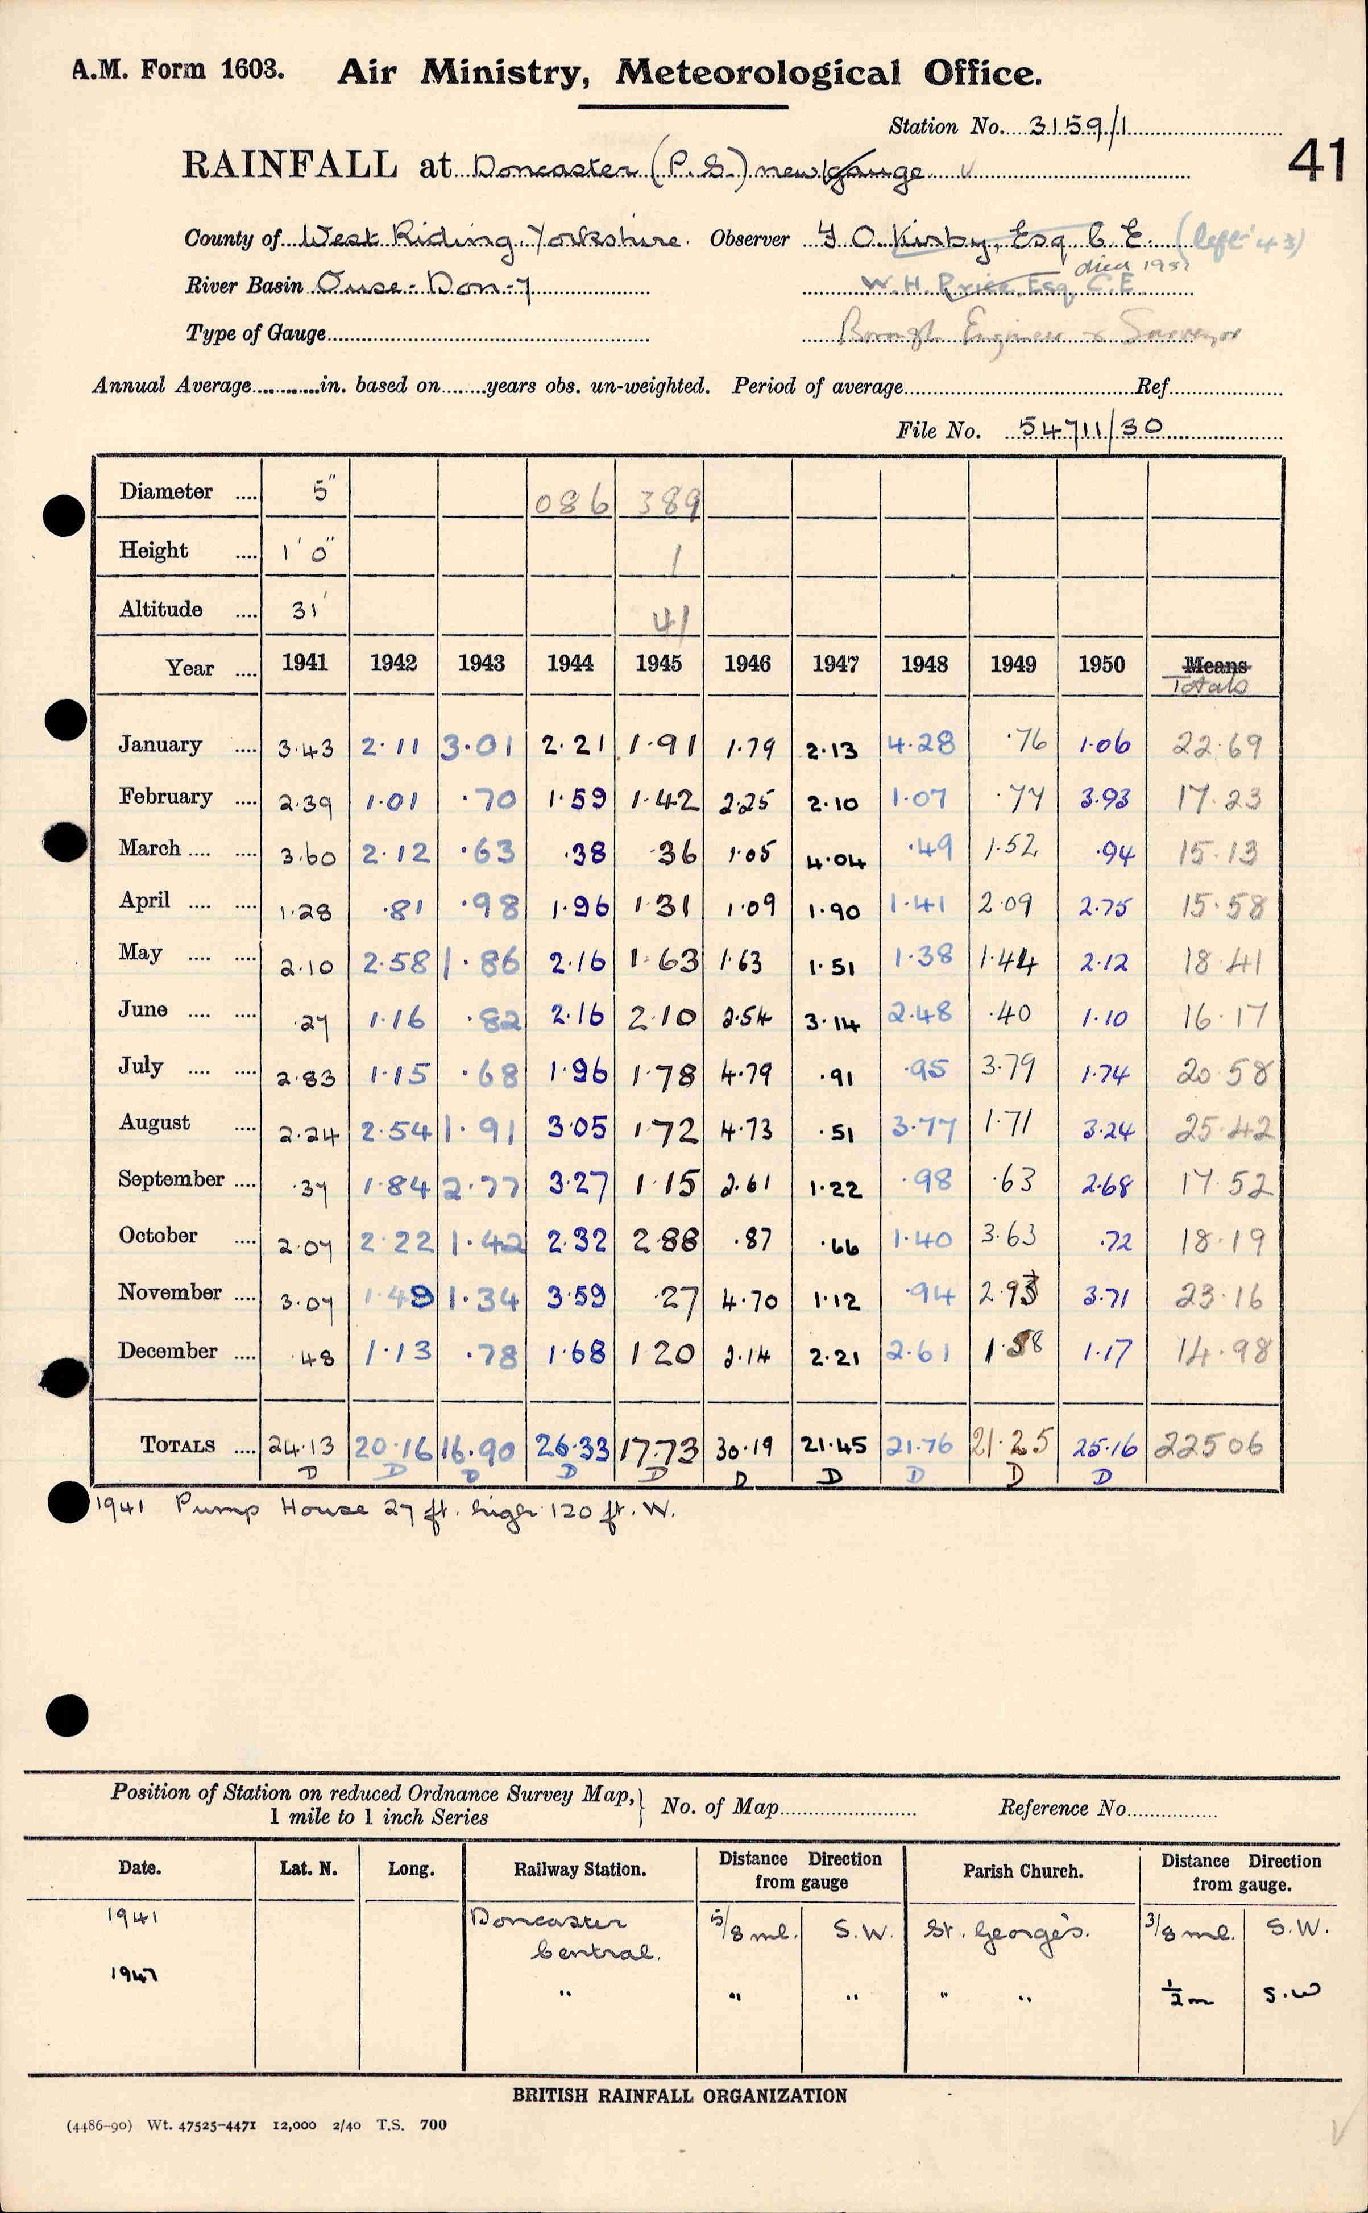 A.M. Form 1603. Air Ministry, Meteorological Office.
Station No. 3159/1
41
RAINFALL at Doncaster (P.S.) new gauge
County of West Riding, Yorkshire. Observer F O. Kirby, Esq C.E. (left '43)
died 1951
River Basin Ouse - Don-7 W.H. Price, Esq, C.E
Type of Gauge Borough Engineer & Surveyor
Annual Average in. based on years obs. un-weighted. Period of average Ref
File No. 54711/30
Diameter .... 5" 086 389
Height .... 1' 0" 1
Altitude .... 31' 41
Year .... 1941 1942 1943 1944 1945 1946 1947 1948 1949 1950 Means
Totals
January .... 3.43 2.11 3.01 2.21 1.91 1.79 2.13 4.28 .76 1.06 22.69
February .... 2.39 1.01 .70 1.59 1.42 2.25 2.10 1.07 .77 3.93 17.23
March .... .... 3.60 2.12 .63 .38 .36 1.05 4.04 .49 1.52 .94 15.13
April .... .... 1.28 .81 .98 1.96 1.31 1.09 1.90 1.41 2.09 2.75 15.58
May .... .... 2.10 2.58 1.86 2.16 1.63 1.63 1.51 1.38 1.44 2.12 18.41
June .... .... .27 1.16 .82 2.16 2.10 2.54 3.14 2.48 .40 1.10 16.17
July .... .... 2.83 1.15 .68 1.96 1.78 4.79 .91 .95 3.79 1.74 20.58
August .... 2.24 2.54 1.91 3.05 1.72 4.73 .51 3.77 1.71 3.24 25.42
September .... .37 1.84 2.77 3.27 1.15 2.61 1.22 .98 .63 2.68 17.52
October .... 2.07 2.22 1.42 2.32 2.88 .87 .66 1.40 3.63 .72 18.19
November .... 3.07 1.49 1.34 3.59 .27 4.70 1.12 .94 2.93 3.71 23.16
December .... .48 1.13 .78 1.68 1.20 2.14 2.21 2.61 1.58 1.17 14.98
TOTALS .... 24.13 20.16 16.90 26.33 17.73 30.19 21.45 21.76 21.25 25.16 225 06
D D D D D D D D D D
1941 Pump House 27 ft. high 120 ft. W.
Position of Station on reduced Ordnance Survey Map,
1 mile to 1 inch Series
No. of Map Reference No
Date. Lat. N. Long. Railway Station. Distance Direction from gauge Parish Church. Distance Direction from gauge.
1941 Doncaster Central. 5/8 ml. S.W. St. George's. 3/8 ml. S.W.
1947 " " " " " 1/2 m S.W
BRITISH RAINFALL ORGANIZATION
(4486-90) Wt. 47525-4471 12,000 2/40 T.S. 700